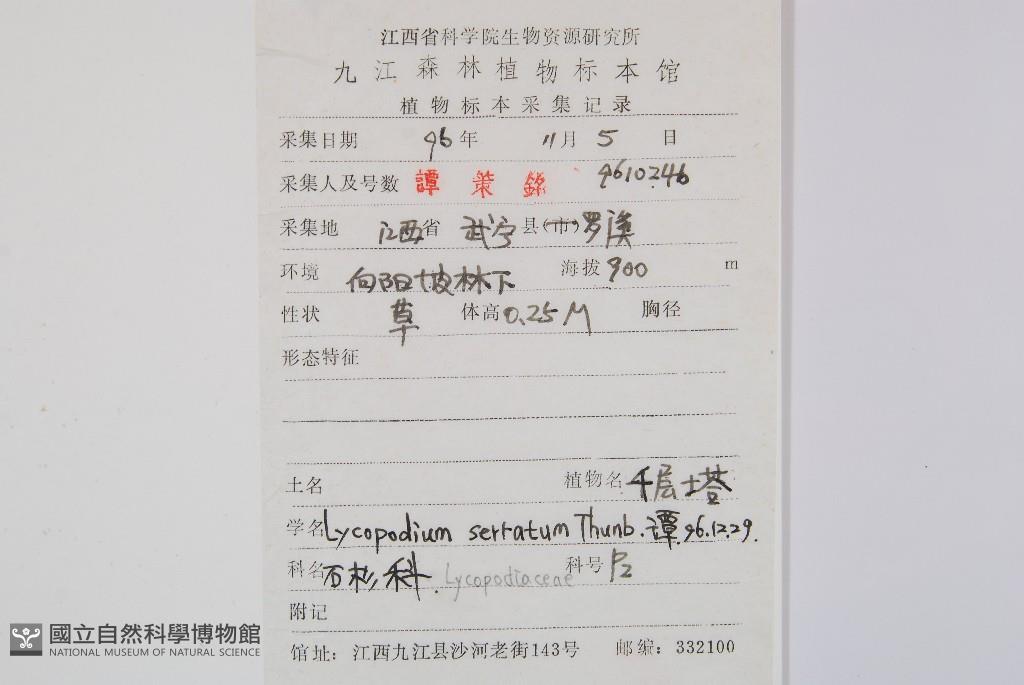 江西省科学院生物资源研究所
九江森林植物标本馆
植物标本采集记录
采集日期 96年 11月 5 日
采集人及号数 譚策銘 9610246
采集地 江西省 武宁县(市)罗溪
环境 向阳坡林下 海拔 900 m
性状 草 体高 0.25M 胸径
形态特征
土名 植物名 千层塔
学名 Lycopodium serratum Thunb. 譚 96.12.29.
科名 石杉科. Lycopodiaceae 科号 P2
附记
馆址: 江西九江县沙河老街143号 邮编: 332100
國立自然科學博物館
NATIONAL MUSEUM OF NATURAL SCIENCE